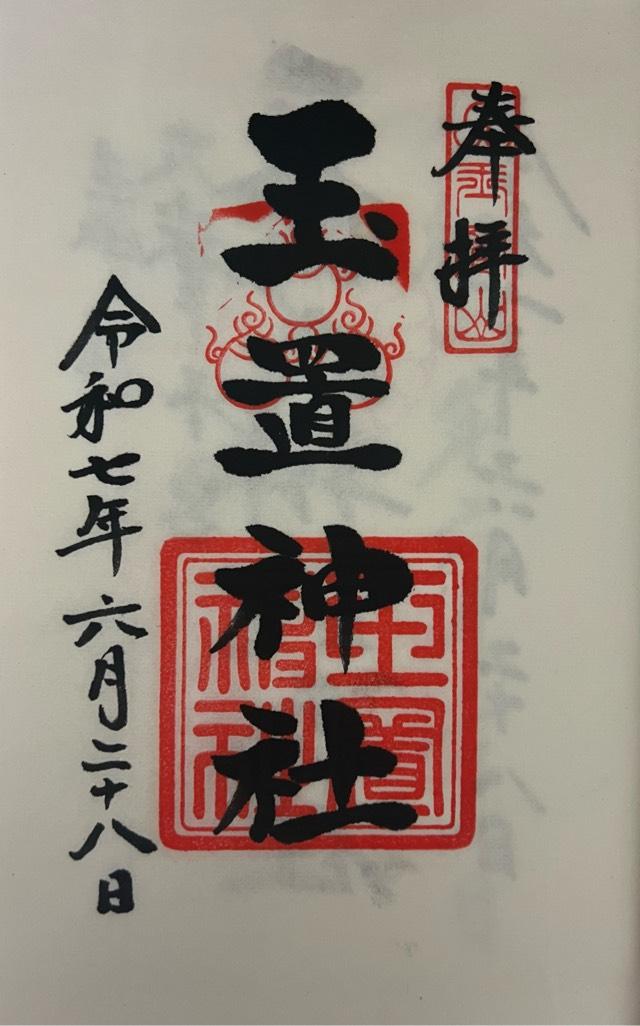 奉拝
玉置神社
令和七年六月二十八日